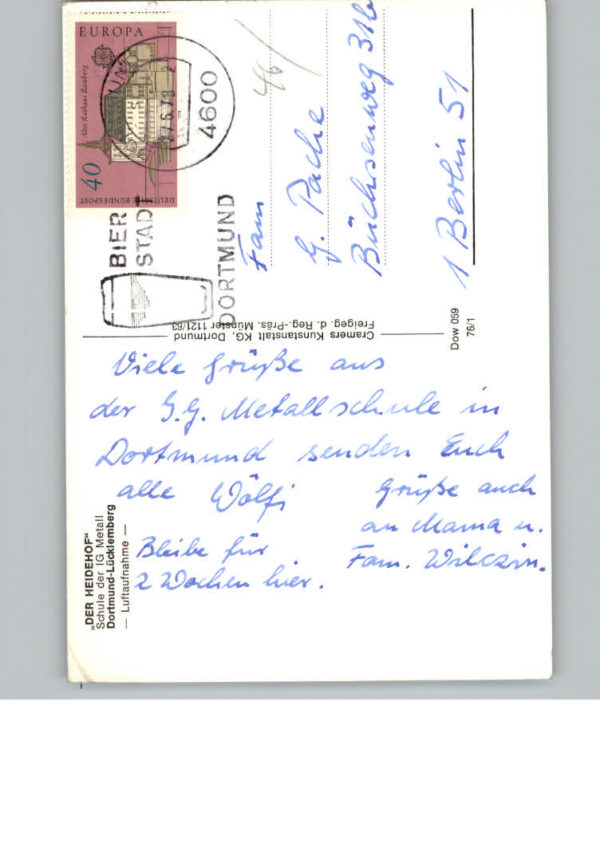 EUROPA
Altes Rathaus Bamberg
40
DEUTSCHE BUNDESPOST
4600
BIER
STADT
DORTMUND
Fam
G. Pache
Büchsenweg 31b
1 Berlin 51
Cramers Kunstanstalt KG, Dortmund
Freigeg. d. Reg.-Präs. Münster 1121/63
Dow 059
76/1
Viele Grüße aus
der I.G. Metallschule in
Dortmund senden Euch
alle Wölfi
Bleibe für
2 Wochen hier.
Grüße auch
an Mama u.
Fam. Wilczin.
„DER HEIDEHOF"
Schule der IG Metall
Dortmund-Lücklemberg
— Luftaufnahme —